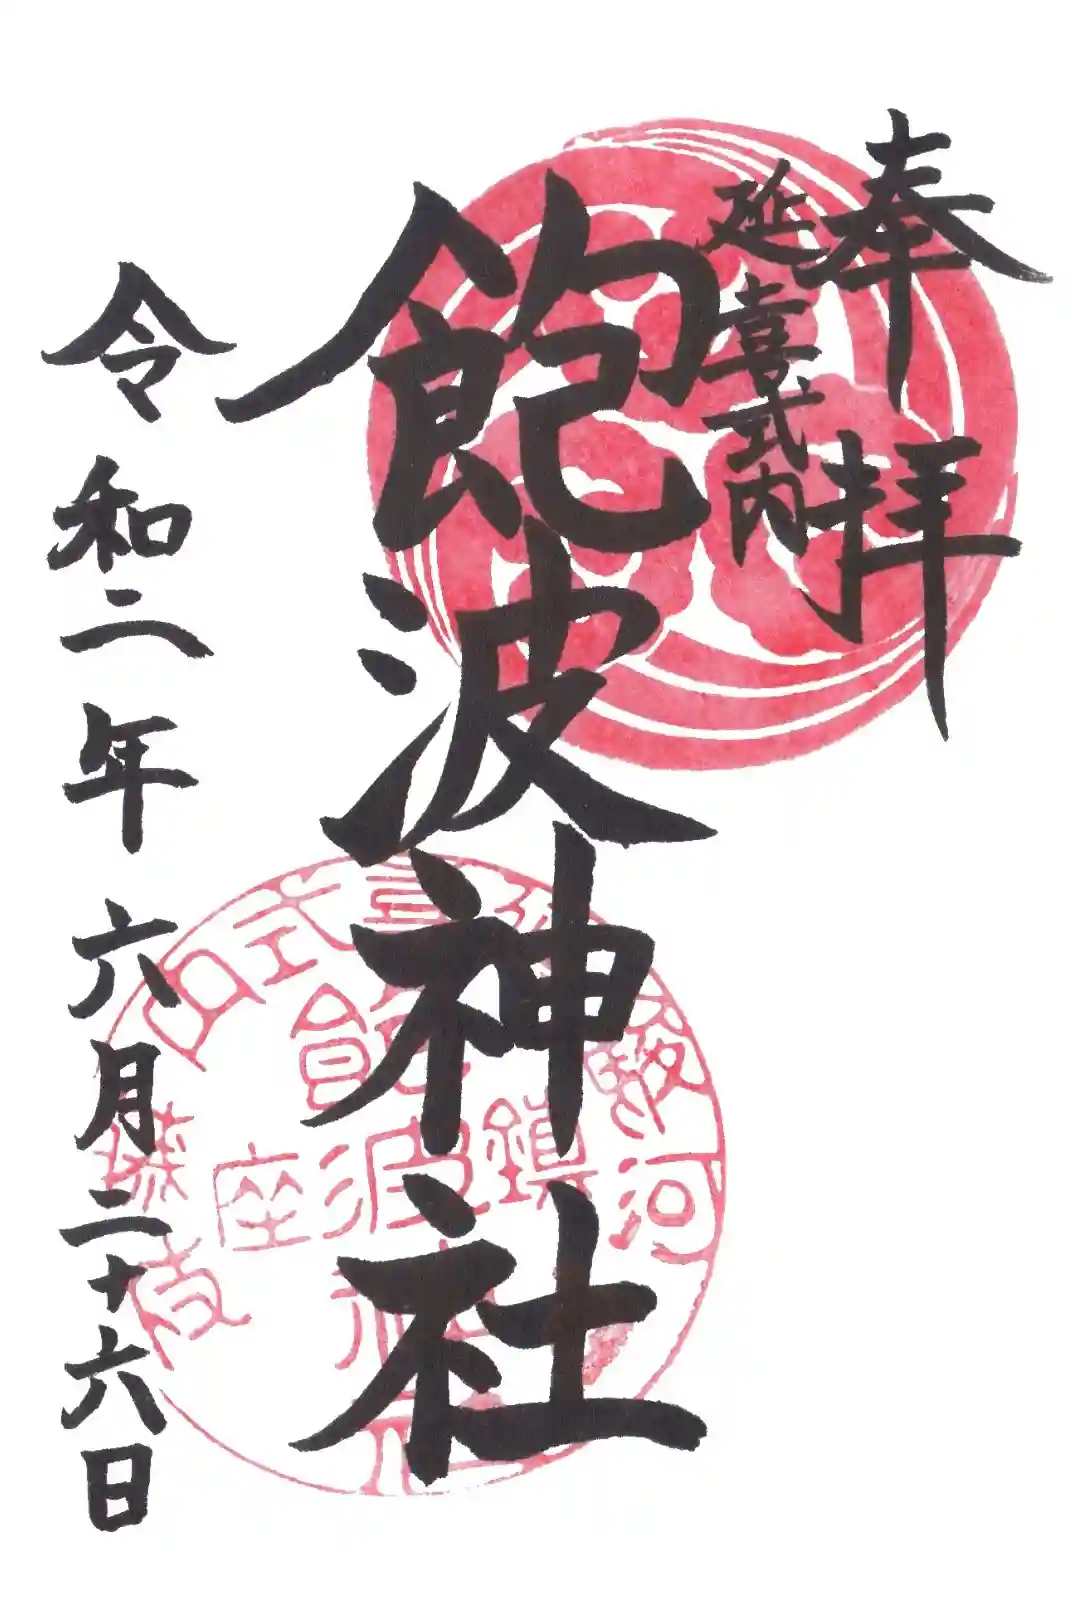 奉拝
延喜式内
飽波神社
令和二年六月二十六日
駿河
鎮座
飽波神社